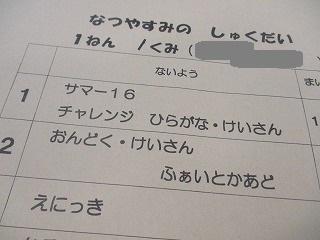 なつやすみの しゅくだい
1ねん 1くみ(
ないよう
まい
1
サマー16
チャレンジ ひらがな・けいさん
1
2
おんどく・けいさん
ふぁいとかあど
えにっき